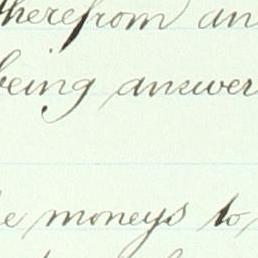 therefrom an
being answer
e moneys to